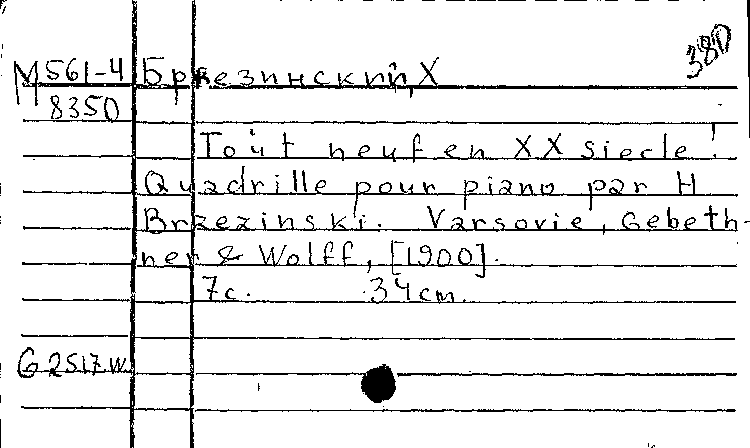 380
M 561-4 Брезинский, Х
8350
Toùt neuf en XX siecle !
Quadrille pour piano par H
Brzezinski. Varsovie, Gebeth-
ner & Wolff, [1900].
7c. 34cm.
G 2517 W.